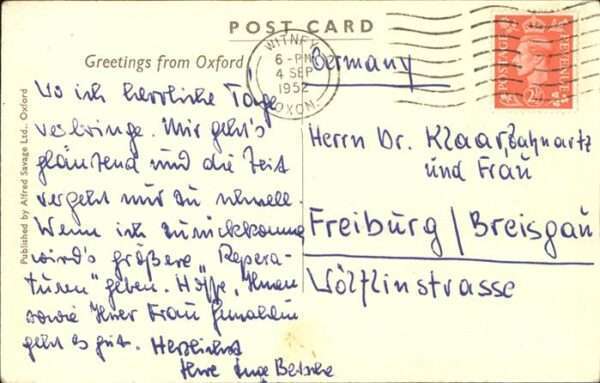 POST CARD
Greetings from Oxford
WITNEY
6-PM
4 SEP
1952
OXON.
POSTAGE
REVENUE
Germany
Wo ich herrliche Tage
verbringe. Mir geht's
glänzend und die Zeit
vergeht nur zu schnell.
Wenn ich zurückkomme
wird's größere „Repera-
turen" geben. Hoffe, Ihnen
sowie Ihrer Frau Gemahlin
geht es gut. Herzlichst
Ihre Inge
Herrn Dr. Klaar, Zahnartz
und Frau
Freiburg / Breisgau
Wölflinstrasse
Published by Alfred Savage Ltd., Oxford